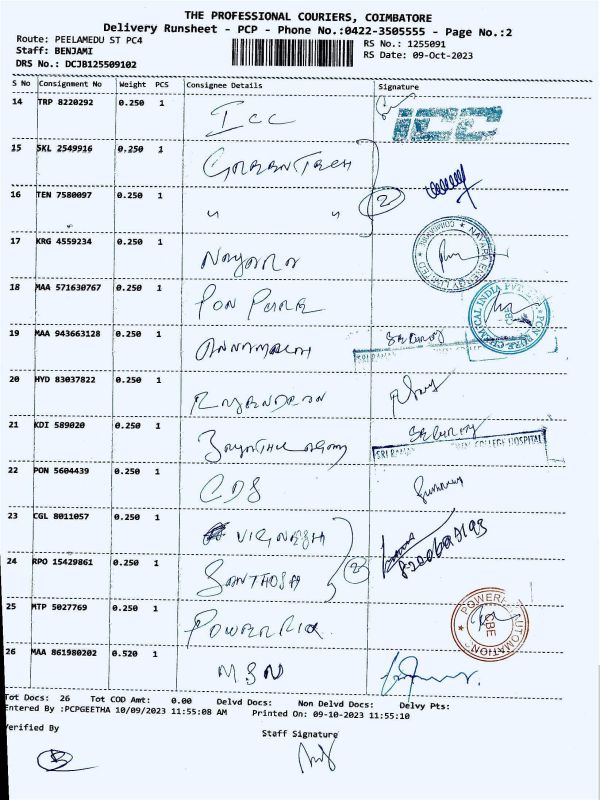 THE PROFESSIONAL COURIERS, COIMBATORE
Delivery Runsheet - PCP - Phone No.:0422-3505555 - Page No.:2
Route: PEELAMEDU ST PC4 RS No.: 1255091
Staff: BENJAMI RS Date: 09-Oct-2023
DRS No.: DCJB125509102
S No Consignment No Weight PCS Consignee Details Signature
14 TRP 8220292 0.250 1 ICC ICC
15 SKL 2549916 0.250 1 GREENTECH
16 TEN 7580097 0.250 1 " " 2
17 KRG 4559234 0.250 1 NAYARA NAYARA ENERGY LIMITED COIMBATORE
18 MAA 571630767 0.250 1 PON PURE PON PURE CHEMICAL INDIA PVT. CBE
19 MAA 943663128 0.250 1 SECURITY
20 HYD 83037822 0.250 1 RAJENDRAN
21 KDI 589020 0.250 1 SECURITY COLLEGE HOSPITAL
22 PON 5604439 0.250 1 CDS
23 CGL 8011057 0.250 1 VIGNESH
24 RPO 15429861 0.250 1 SANTHOSH 2
25 MTP 5027769 0.250 1 POWERRICA POWER AUTOMATION CBE
26 MAA 861980202 0.520 1 MSN
Tot Docs: 26 Tot COD Amt: 0.00 Delvd Docs: Non Delvd Docs: Delvy Pts:
Entered By :PCPGEETHA 10/09/2023 11:55:08 AM Printed On: 09-10-2023 11:55:10
Verified By Staff Signature